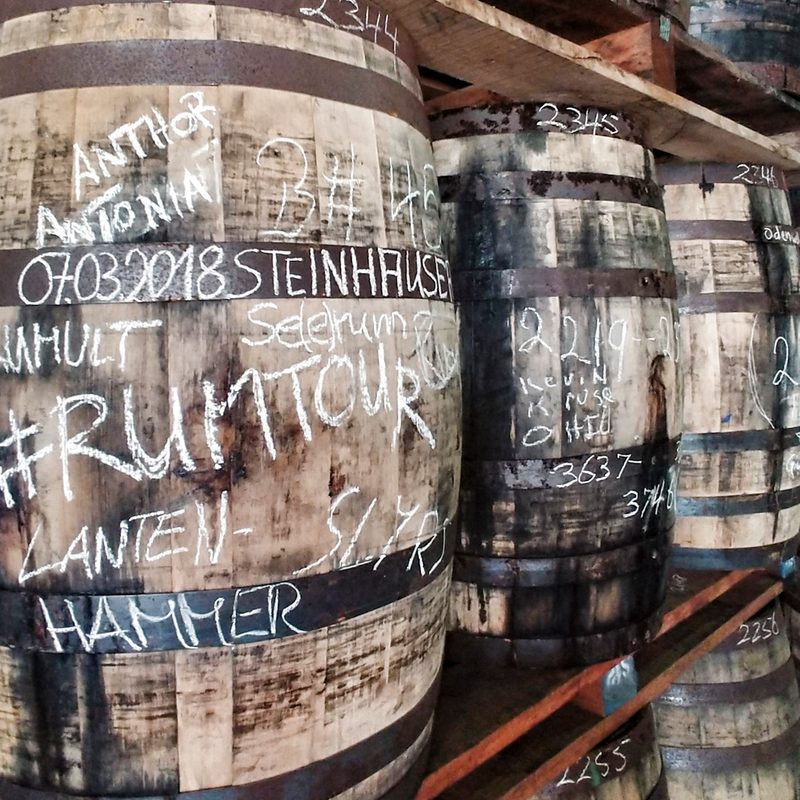 2344
ANTHOR
ANTONIA
B# 46
07.03.2018 STEINHAUSER
Selerum
#RUMTOUR
LANTEN-
SLYRS
HAMMER
2345
2219--2
KEVIN
KRUSE
3637-
374
234
odenw
(2
2256
2255